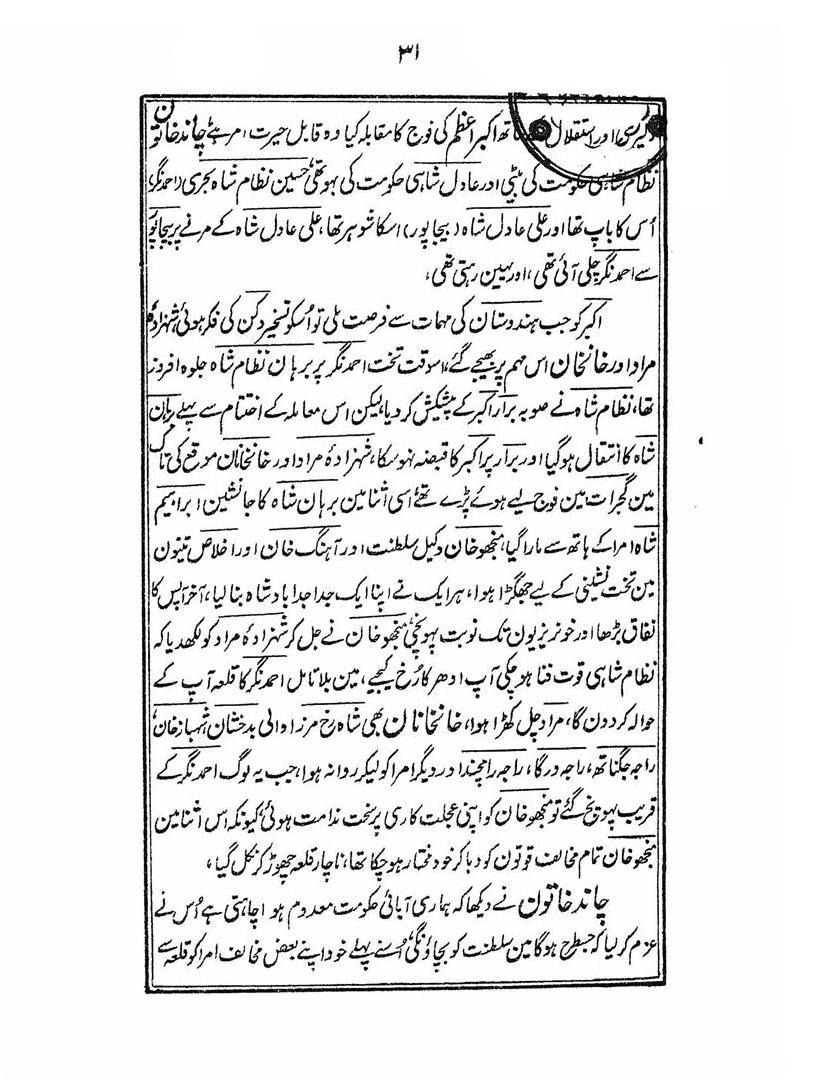 ۳۱
دلیری اور استقلال ساتھ اکبر اعظم کی فوج کا مقابلہ کیا وہ قابل حیرت امر ہے چاند خاتون
نظام شاہی حکومت کی بیٹی اور عادل شاہی حکومت کی بہو تھی، حسین نظام شاہ بحری (احمد نگر)
اُس کا باپ تھا اور علی عادل شاہ (بیجا پور) اسکا شوہر تھا، علی عادل شاہ کے مرنے پر بیجاپور
سے احمد نگر چلی آئی تھی، اور یہین رہتی تھی،
اکبر کو جب ہندوستان کی مہمات سے فرصت ملی تو اُسکو تسخیر دکن کی فکر ہوئی، شہزادہ
مراد اور خانخانان اس مہم پر بھیجے گئے، اسوقت تخت احمد نگر پر برہان نظام شاہ جلوہ افروز
تھا، نظام شاہ نے صوبہ برار اکبر کے پیشکش کر دیا، لیکن اس معاملہ کے اختتام سے پہلے برہان
شاہ کا انتقال ہوگیا اور برار پر اکبر کا قبضہ نہوسکا، شہزادۂ مراد اور خانخانان موقع کی تاک
مین گجرات مین فوج لیے ہوئے پڑے تھے، اسی اثنا مین برہان شاہ کا جانشین ابراہیم
شاہ امرا کے ہاتھ سے مارا گیا، منجھو خان وکیل سلطنت اور آہنگ خان اور اخلاص تینون
مین تخت نشینی کے لیے جھگڑا ہوا، ہر ایک نے اپنا ایک جدا جدا بادشاہ بنا لیا، آخر آپس کا
نفاق بڑھا اور خونریزیون تک نوبت پہونچی، منجھو خان نے جل کر شہزادۂ مراد کو لکھدیا کہ
نظام شاہی قوت فنا ہو چکی آپ ادھر کا رُخ کیجیے، مین بلا تامل احمد نگر کا قلعہ آپ کے
حوالہ کردون گا، مراد چل کھڑا ہوا، خانخانان بھی شاہ رخ مرزا والی بدخشان، شہباز خان،
راجہ جگناتھ، راجہ درگا، راجہ رامچند اور دیگر امرا کو لیکر روانہ ہوا، جب یہ لوگ احمد نگر کے
قریب پہونچ گئے تو منجھو خان کو اپنی عجلت کاری پر سخت ندامت ہوئی، کیونکہ اس اثنا مین
منجھو خان تمام مخالف قوتون کو دبا کر خود مختار ہو چکا تھا، ناچار قلعہ چھوڑ کر نکل گیا،
چاند خاتون نے دیکھا کہ ہماری آبائی حکومت معدوم ہوا چاہتی ہے اُس نے
عزم کر لیا کہ جسطرح ہوگا مین سلطنت کو بچاؤنگی، اُسنے پہلے خود اپنے بعض مخالف امرا کو قلعہ سے